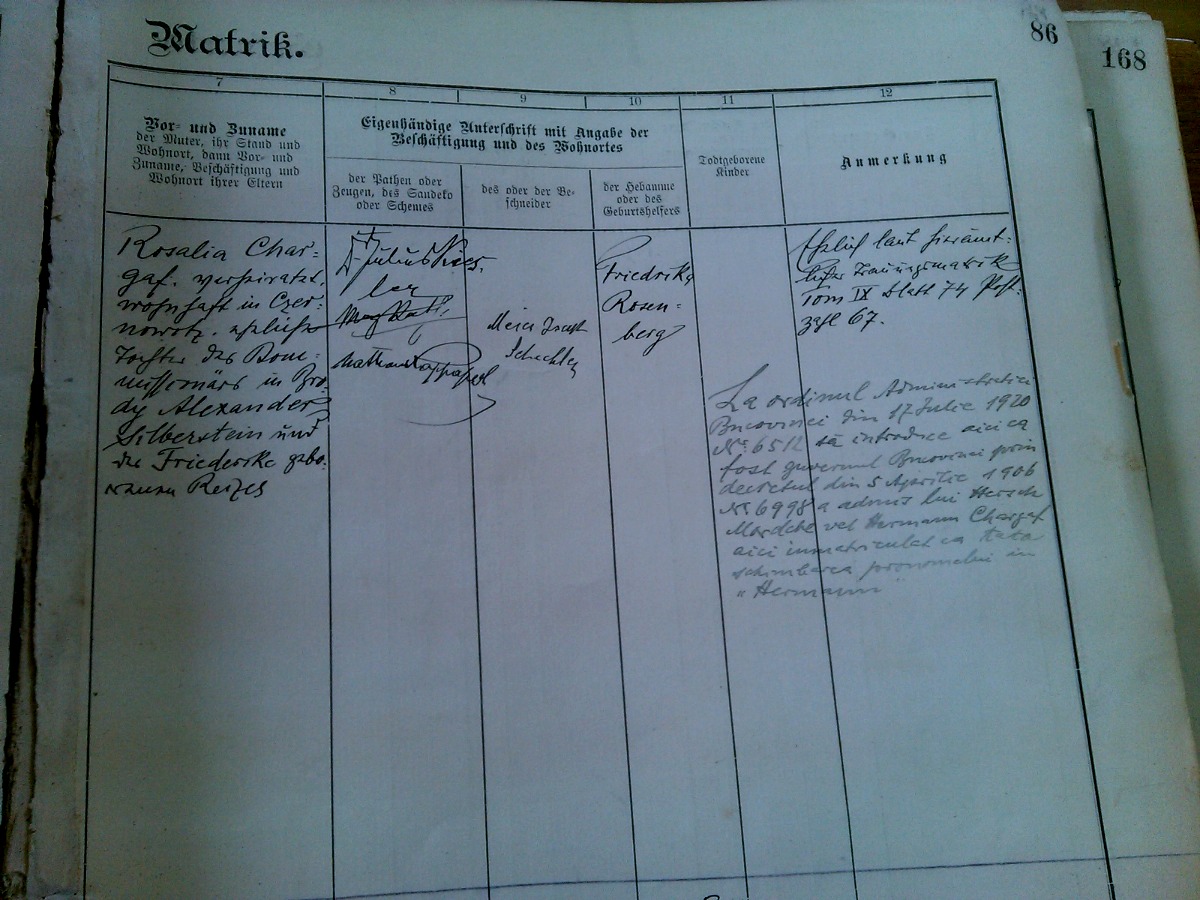 Matrik.
86
168
7
8
9
10
11
12
Vor- und Zuname
der Mutter, ihr Stand und
Wohnort, dann Vor- und
Zuname, Beschäftigung und
Wohnort ihrer Eltern
Eigenhändige Unterschrift mit Angabe der
Beschäftigung und des Wohnortes
der Pathen oder
Zeugen, des Sandeko
oder Schemes
des oder der Be-
schneider
der Hebamme
oder des
Geburtshelfers
Todtgeborene
Kinder
Anmerkung
Rosalia Char-
gaf. verheiratet,
wohnhaft in Czer-
nowitz. eheliche
Tochter des Kom-
missionärs in Bro-
dy Alexander
Silberstein und
der Friederike gebo-
renen Reizes
Dr. Julius
Nathan
Meier
Schechter
Friedrike
Rosen-
berg
Ehelich laut hierämt-
licher Trauungsmatrik
Tom IX Blatt 74 Post-
zahl 67.
La ordinul Administratiei
Bucovinei din 17 Iulie 1920
Nr. 6512 se introduce aici ca
fost guvernul Bucovinei prin
decretul din 5 Aprilie 1906
Nr. 6998 a admis lui Hersch
Mordche vel Hermann Chargaf
aici inmatriculat ca tata
schimbarea pronumelui in
"Hermann"